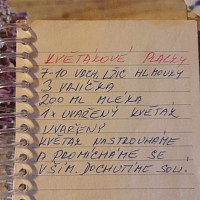 KVĚTÁKOVÉ PLACKY
7-10 VRCH. LŽIC HL. MOUKY
3 VAJÍČKA
200 ML MLÉKA
1x UVAŘENÝ KVĚTÁK
UVAŘENÝ
KVĚTÁK NASTROUHÁME
A PROMÍCHÁME SE
VŠÍM. DOCHUTÍME SOLÍ.